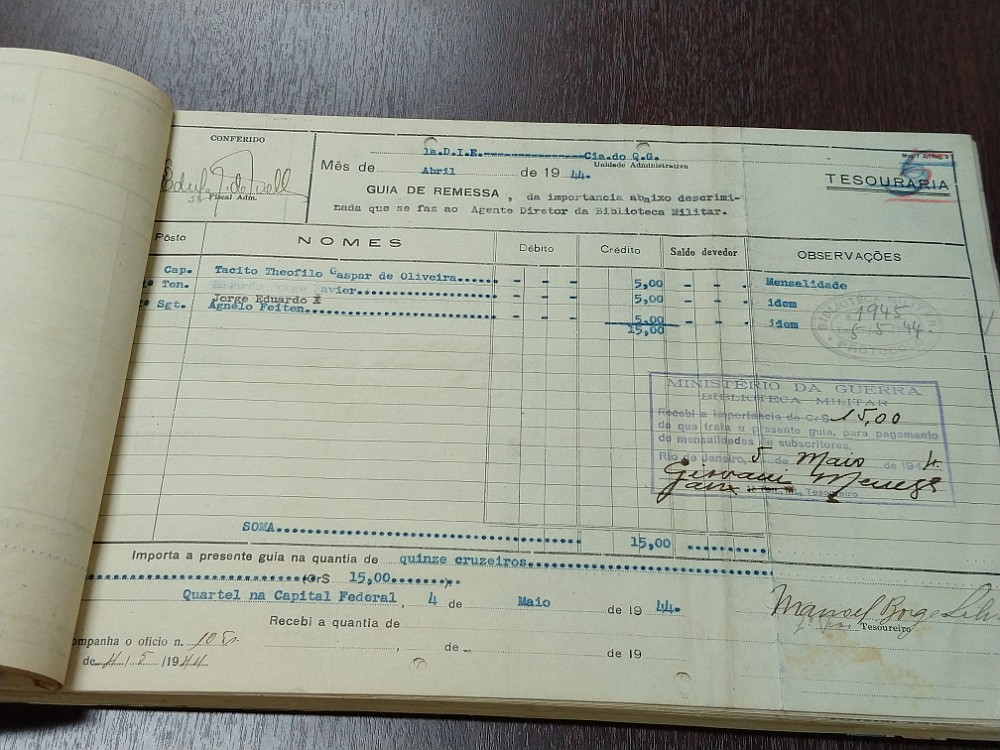 CONFERIDO
Fiscal Adm.
1a.D.I.E.-----------------Cia.do Q.G.
Unidade Administrativa
Mês de Abril de 1944.
GUIA DE REMESSA, da importancia abaixo descrimi-
nada que se faz ao Agente Diretor da Biblioteca Militar.
5
TESOURARIA
Pôsto NOMES Débito Crédito Saldo devedor OBSERVAÇÕES
Cap. Tacito Theofilo Gaspar de Oliveira..... - - - 5,00 - - - Mensalidade
Ten. Xavier................ - - - 5,00 - - - idem
Jorge Eduardo X
Sgt. Agnelo Feiten........................ - - - 5,00 - - - idem
15,00
BIBLIOTECA MILITAR
1945
5-5-44
PROTOCOLO
MINISTÉRIO DA GUERRA
BIBLIOTECA MILITAR
Recebi a importancia de Cr$ 15,00
de que trata a presente guia, para pagamento
de mensalidades de subscritores.
Rio de Janeiro, 5 de Maio de 1944.
Giovani Menegs
Tesoureiro
SOMA........................................ 15,00 ..........
Importa a presente guia na quantia de quinze cruzeiros..............................
..............................(Cr$ 15,00.......).
Quartel na Capital Federal, 4 de Maio de 1944.
Manoel Borges
Tesoureiro
Recebi a quantia de
, de de 19
ompanha o oficio n. 10
de 4 / 5 /1944